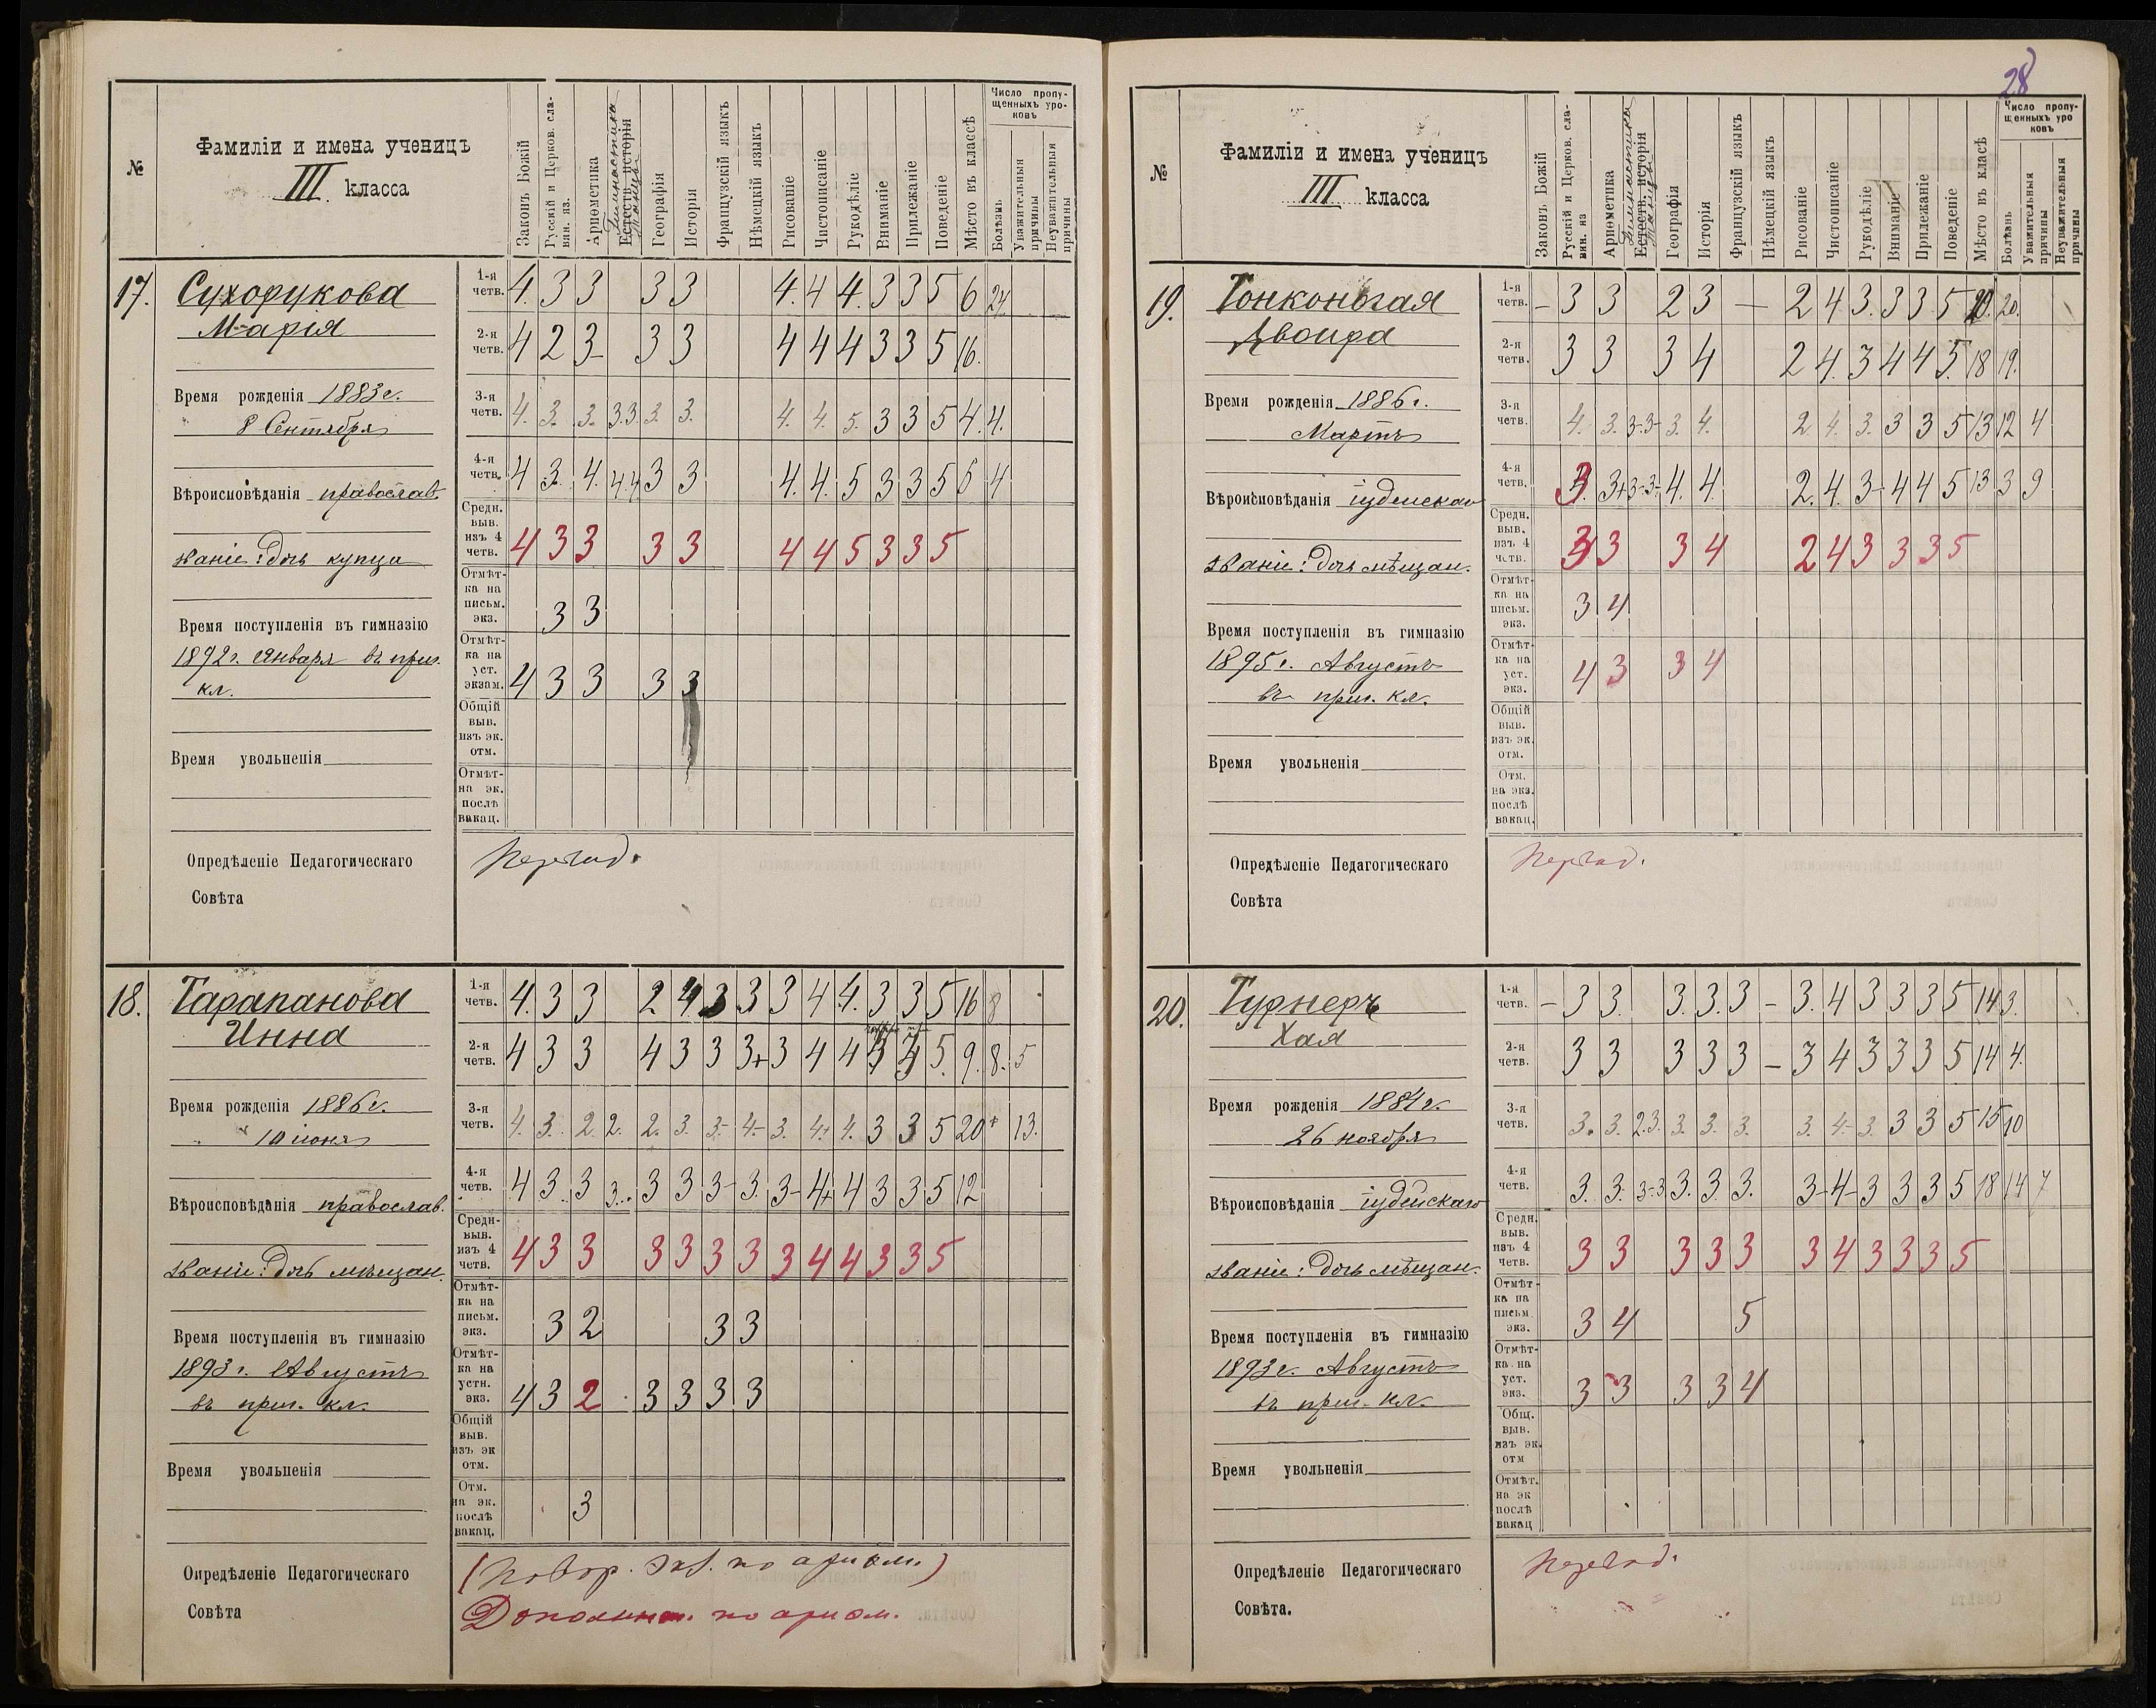 28
№
Фамиліи и имена ученицъ
III класса
Законъ Божій
Русскій и Церков. сла-
вян. яз.
Ариѳметика
Гимнастика
Естеств. исторія
Танцы
Географія
Исторія
Французскій языкъ
Нѣмецкій языкъ
Рисованіе
Чистописаніе
Рукодѣліе
Вниманіе
Прилежаніе
Поведеніе
Мѣсто въ классѣ
Число пропу-
щенныхъ уро-
ковъ
Болѣзнь
Уважительныя
причины
Неуважительныя
причины
17.
Сухорукова
Марія
Время рожденія 1883 г.
8 Сентября
Вѣроисповѣданія православ.
званіе: дочь купца
Время поступленія въ гимназію
1892 г. Января въ приг.
кл.
Время увольненія
1-я четв. 4. 3 3 3 3 4. 4 4. 3 3 5 6 24.
2-я четв. 4 2 3- 3 3 4 4 4 3 3 5 16.
3-я четв. 4. 3. 3. 3.3. 3. 3. 4. 4. 5. 3 3 5 4. 4.
4-я четв. 4 3. 4. 4 4 3 3 4. 4. 5 3 3 5 6 4
Средн. выв. изъ 4 четв. 4 3 3 3 3 4 4 5 3 3 5
Отмѣт-ка на письм. экз. 3 3
Отмѣт-ка на уст. экзам. 4 3 3 3 3
Общій выв. изъ эк. отм.
Отмѣт- на эк. послѣ вакац.
Опредѣленіе Педагогическаго
Совѣта
Перевод.
18.
Тарапанова
Инна
Время рожденія 1886 г.
10 іюня
Вѣроисповѣданія православ.
званіе: дочь мѣщан.
Время поступленія въ гимназію
1893 г. Августъ
въ приг. кл.
Время увольненія
1-я четв. 4. 3 3 2 4 3 3 3 4 4. 3 3 5 16 8
2-я четв. 4 3 3 4 3 3 3+ 3 4 4 3 3 5. 9. 8. 5
3-я четв. 4. 3. 2. 2. 2. 3. 3- 4- 3. 4+ 4. 3 3 5 20 13.
4-я четв. 4 3. 3 3.. 3 3 3- 3. 3- 4+ 4 3 3 5 12
Средн- выв. изъ 4 четв. 4 3 3 3 3 3 3 3 4 4 3 3 5
Отмѣт-ка на письм. экз. 3 2 3 3
Отмѣт-ка на устн. экз. 4 3 2 3 3 3 3
Общій выв. изъ эк отм.
Отм. на эк. послѣ вакац. 3
Опредѣленіе Педагогическаго
Совѣта
(Повор. экз. по ариѳм.)
Дополнит. по ариѳм.
№
Фамиліи и имена ученицъ
III класса
Законъ Божій
Русскій и Церков. сла-
вян. яз
Ариѳметика
Гимнастика
Естеств. исторія
Танцы
Географія
Исторія
Французскій языкъ
Нѣмецкій языкъ
Рисованіе
Чистописаніе
Рукодѣліе
Вниманіе
Прилежаніе
Поведеніе
Мѣсто въ класѣ
Число пропу-
щенныхъ уро
ковъ
Болѣзнь
Уважительныя
причины
Неуважительныя
причины
19.
Тонконогая
Двойра
Время рожденія 1886 г.
Мартъ
Вѣроисповѣданія іудейскаго
званіе: дочь мѣщан.
Время поступленія въ гимназію
1895 г. Августъ
въ приг. кл.
Время увольненія
1-я четв. – 3 3 2 3 – 2 4 3. 3 3 5 20. 20.
2-я четв. 3 3 3 4 2 4. 3 4 4 5. 18 19.
3-я четв. 4. 3. 3-3- 3. 4. 2. 4. 3. 3 3 5 13 12 4
4-я четв. 3. 3+ 3-3- 4. 4. 2. 4. 3- 4 4 5 13 3 9
Средн. выв. изъ 4 четв. 3 3 3 4 2 4 3 3 3 5
Отмѣт-ка на письм. экз. 3 4
Отмѣт-ка на уст. экз. 4 3 3 4
Общій выв. изъ эк. отм.
Отм. на экз. послѣ вакац.
Опредѣленіе Педагогическаго
Совѣта
Перевод.
20.
Турнеръ
Хая
Время рожденія 1884 г.
26 ноября
Вѣроисповѣданія іудейскаго
званіе: дочь мѣщан.
Время поступленія въ гимназію
1893 г. Августъ
въ приг. кл.
Время увольненія
1-я четв. – 3 3. 3. 3. 3 – 3. 4 3 3 3 5 14 3.
2-я четв. 3 3 3 3 3 – 3 4 3 3 3 5 14 4.
3-я четв. 3. 3. 2.3. 3. 3. 3. 3. 4- 3. 3 3 5 15 10
4-я четв. 3. 3. 3-3 3. 3. 3. 3- 4- 3 3 3 5 18 14 7
Средн. выв. изъ 4 четв. 3 3 3 3 3 3 4 3 3 3 5
Отмѣт-ка на письм. экз. 3 4 5
Отмѣт-ка на уст. экз. 3 3 3 3 4
Общ. выв. изъ эк. отм
Отмѣт. на эк послѣ вакац
Опредѣленіе Педагогическаго
Совѣта.
Перевод.